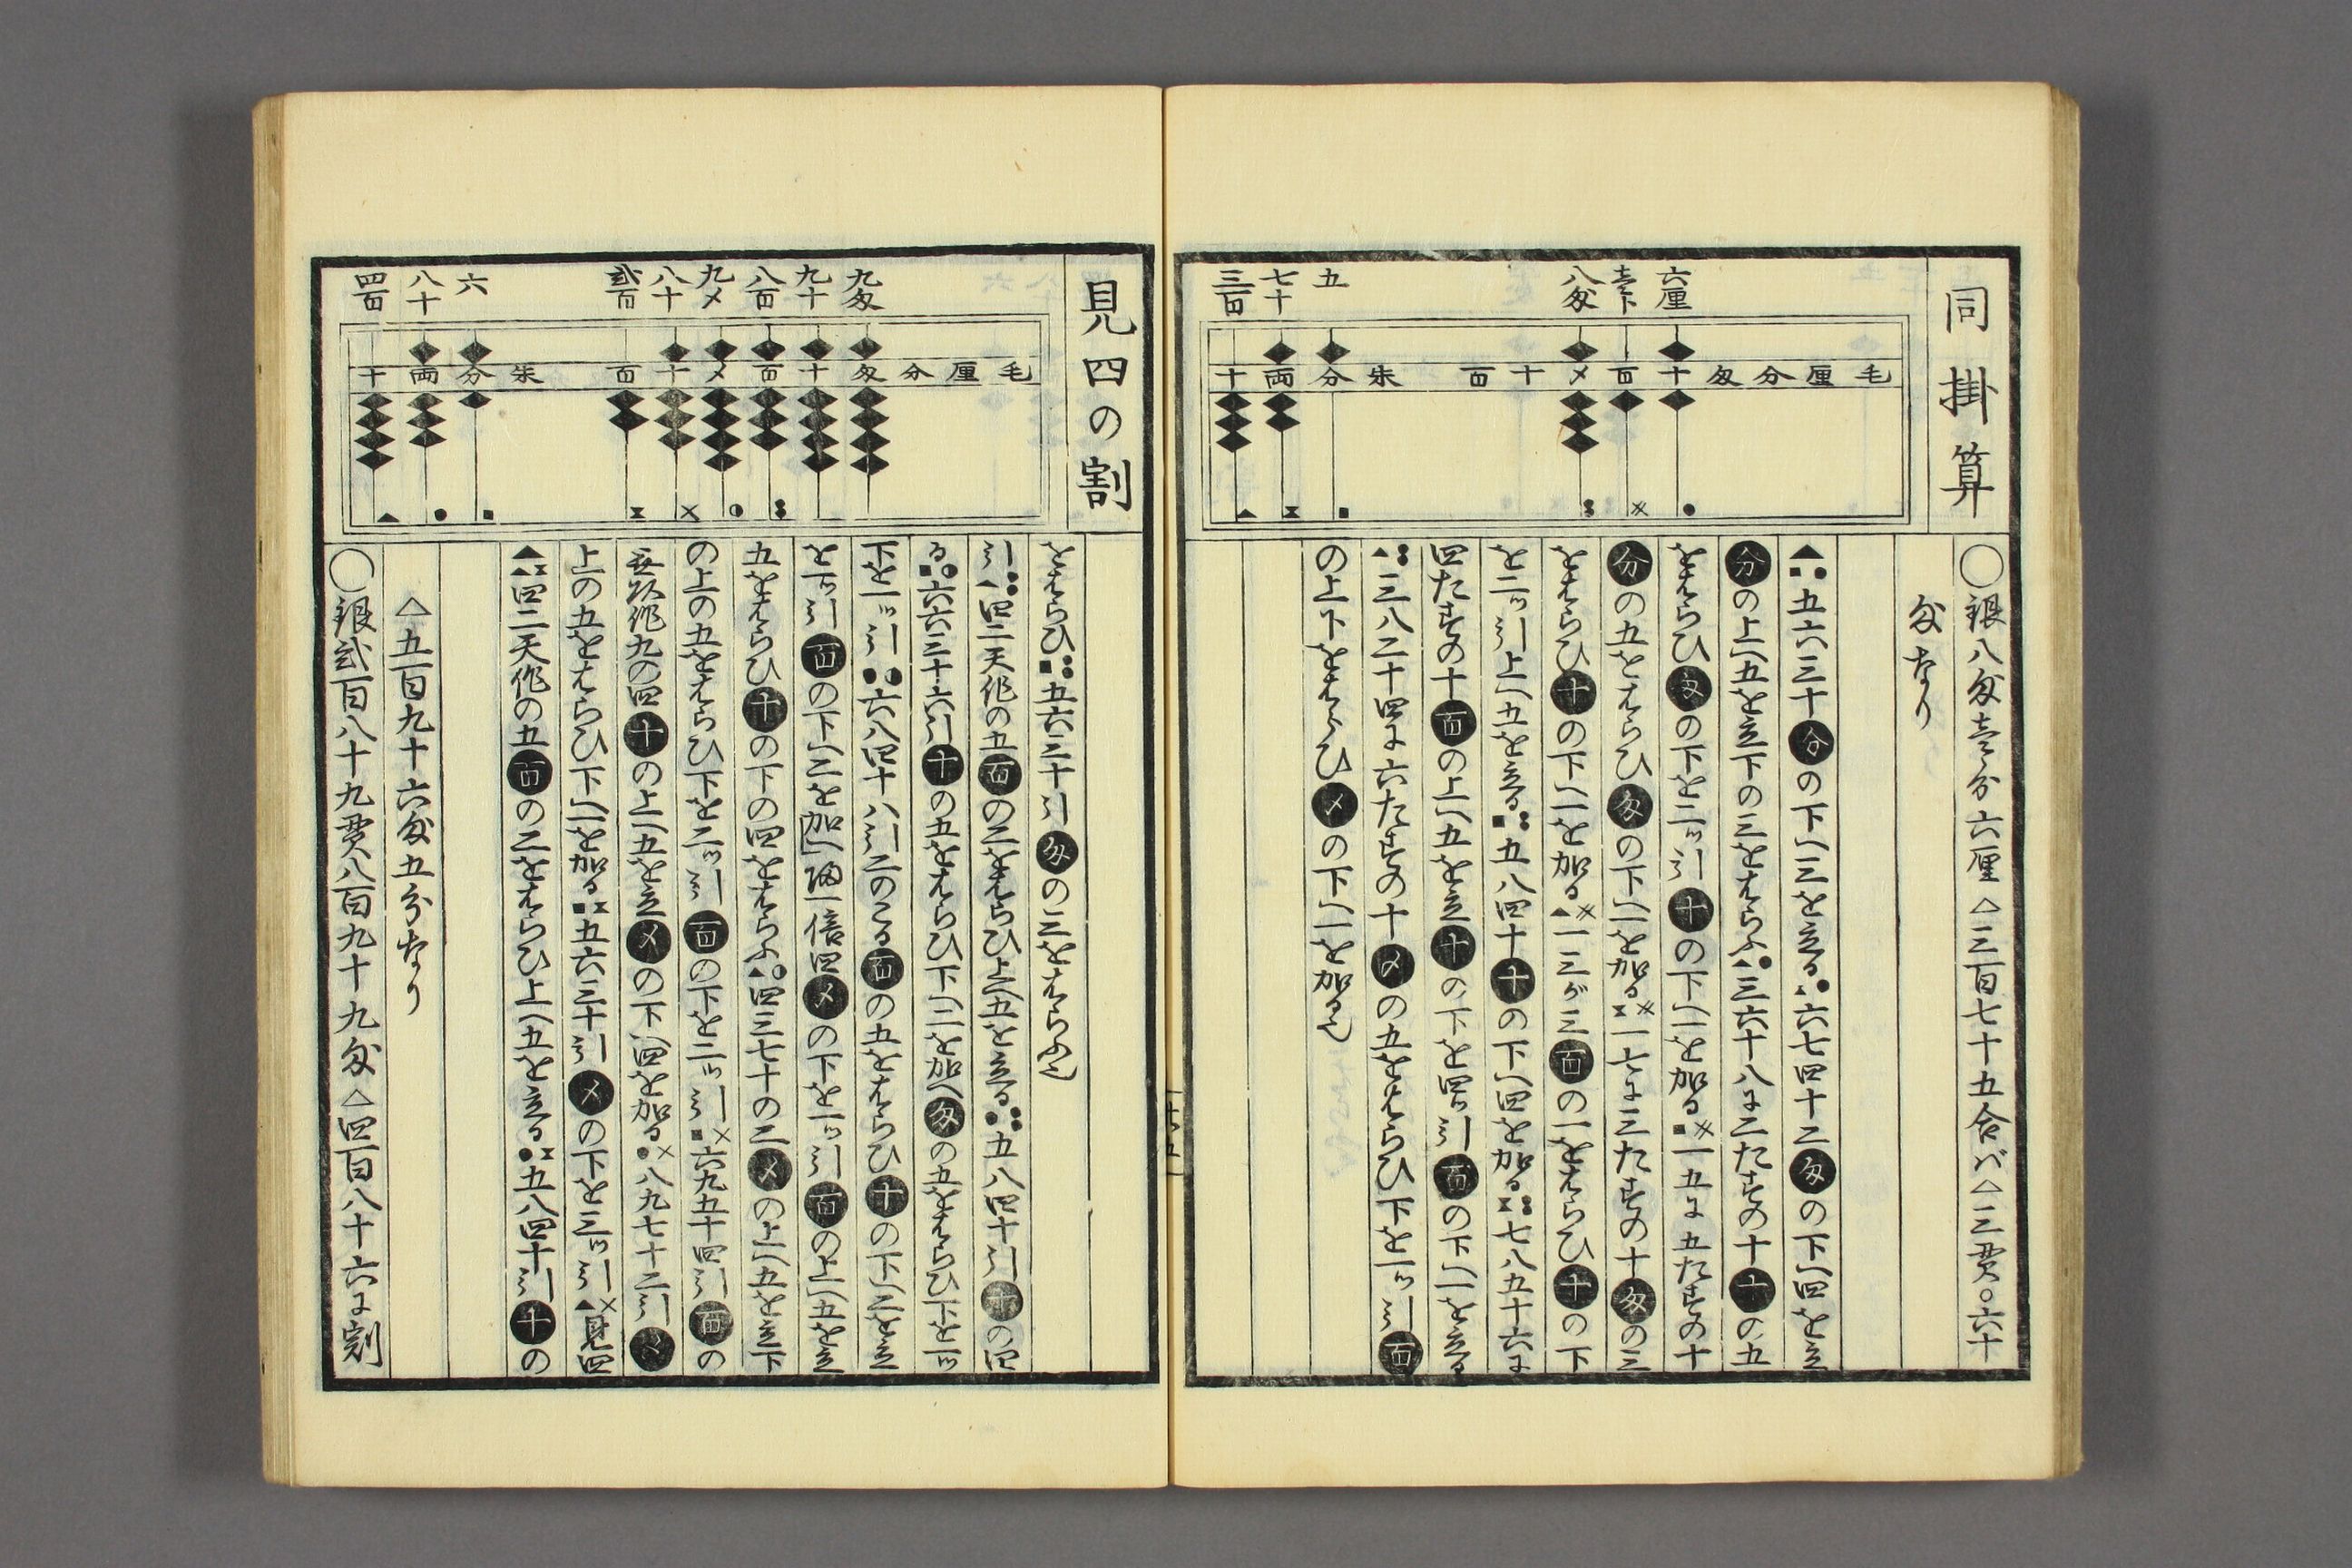 同掛算
六厘
壱分
八匁
五
七十
三百
毛 厘 分 匁 十 百 〆 十 百 朱 分 両 十
〇銀八匁壱分六厘△三百七十五合バ△三貫〇六十
匁なり
五六三十分の下へ三を立る六七四十二匁の下へ四を立
分の上へ五を立下の三をはらふ三六十八に二たすの十十の五
をはらひ匁の下を二ッ引十の下へ一を加る一五に五たすの十
分の五をはらひ匁の下へ一を加る一七に三たすの十匁の三
をはらひ十の下へ一を加る一三が三百の一をはらひ十の下
を二ッ引上へ五を立る五八四十十の下へ四を加る七八五十六に
四たすの十百の上へ五を立十の下を四ッ引百の下へ一を立る
三八二十四に六たすの十〆の五をはらひ下を一ッ引百
の上下をはらひ〆の下へ一を加る也
見四の割
九匁
九十
八百
九〆
八十
弐百
六
八十
四百
毛 厘 分 匁 十 百 〆 十 百 朱 分 両 十
をはらひ五六三十引匁の三をはらふ也
引四二天作の五百の二をはらひ上へ五を立る五八四十引十の四
る六六三十六引十の五をはらひ下へ二を加へ匁の五をはらひ下を一ッ
下を一ッ引六八四十八引二のこる百の五をはらひ十の下へ二を立
を一ッ引百の下へ二を加へ帰一倍四〆の下を一ッ引百の上へ五を立
五をはらひ十の下の四をはらふ四三七十の二〆の上へ五を立下
の上の五をはらひ下を二ッ引百の下を二ッ引六九五十四引百の
無頭作九の四十の上へ五を立〆の下へ四を加る八九七十二引〆
上の五をはらひ下へ一を加る五六三十引〆の下を三ッ引見四
四二天作の五百の二をはらひ上へ五を立る五八四十引十の
△五百九十六匁五分なり
〇銀弐百八十九貫八百九十九匁△四百八十六に割